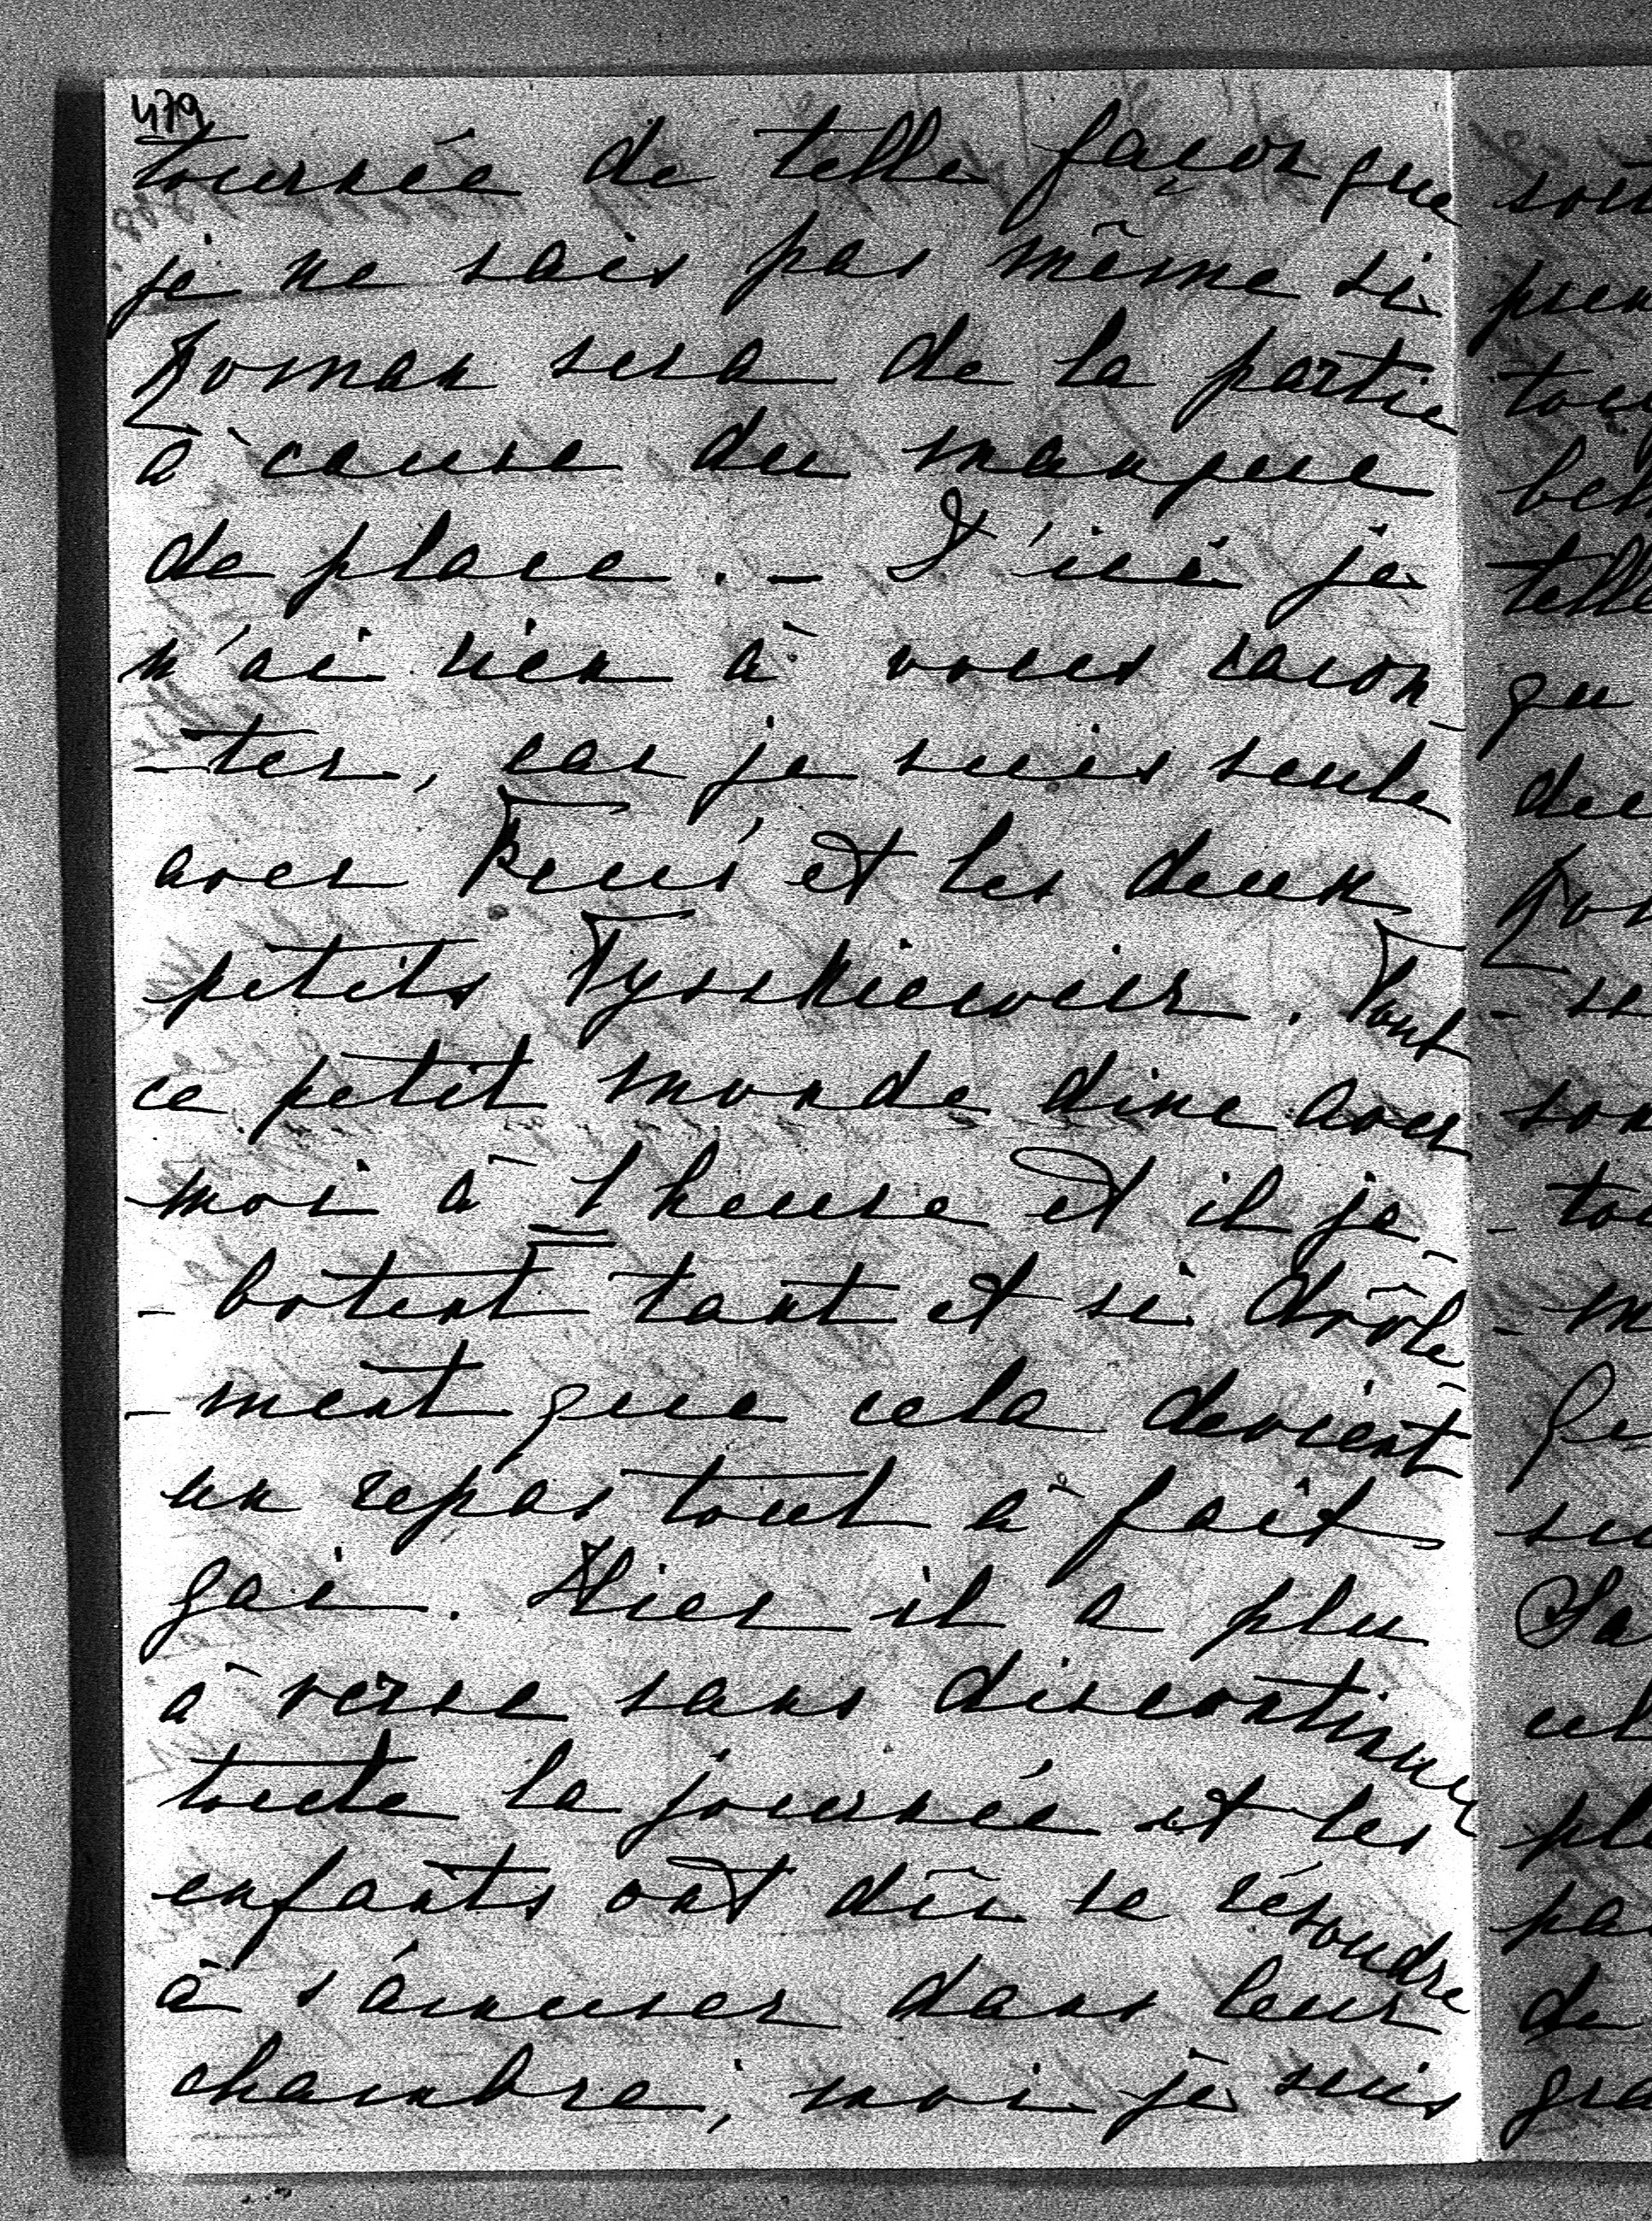 479
tournée de telle façon que
je ne sais pas même si
Roman sera de la partie
à cause du manque
de place. - D'ici je
n'ai rien à vous racon-
-ter, car je suis seule
avec et les deux
petits Tyszkiewicz. Tout
ce petit monde dine avec
moi à 1 heure et il ja-
-botent tant et si drôle-
-ment que cela devient
un repas tout à fait
gai. Hier il a plu
à verse sans discontinuer
toute la journée et les
enfants ont dû se résoudre
à s'amuser dans leur
chambre, moi je suis